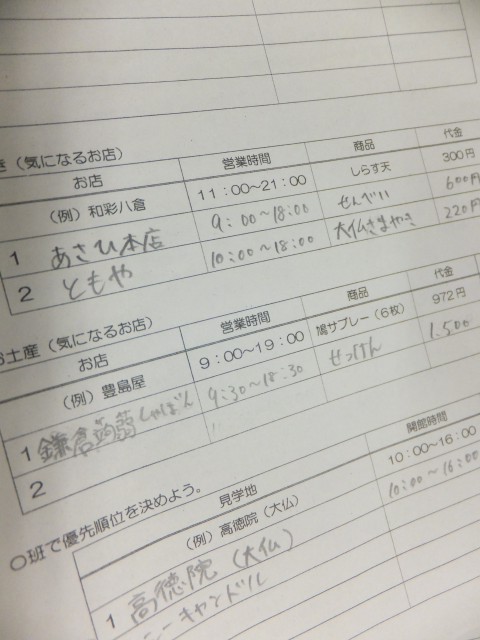 き（気になるお店）
お店 営業時間 商品 代金
（例）和彩八倉 11：00～21：00 しらす天 300円
1 あさひ本店 9：00～18:00 せんべい 600円
2 ともや 10:00～18:00 大仏さまやき 220円
お土産（気になるお店）
お店 営業時間 商品 代金
（例）豊島屋 9：00～19：00 鳩サブレー（6枚） 972円
1 鎌倉蒟蒻しゃぼん 9:30～18:30 せっけん 1.500
2
〇班で優先順位を決めよう。
見学地 開館時間
（例）高徳院（大仏） 10：00～16：00
1 高徳院（大仏） 10:00～16:00
シーキャンドル